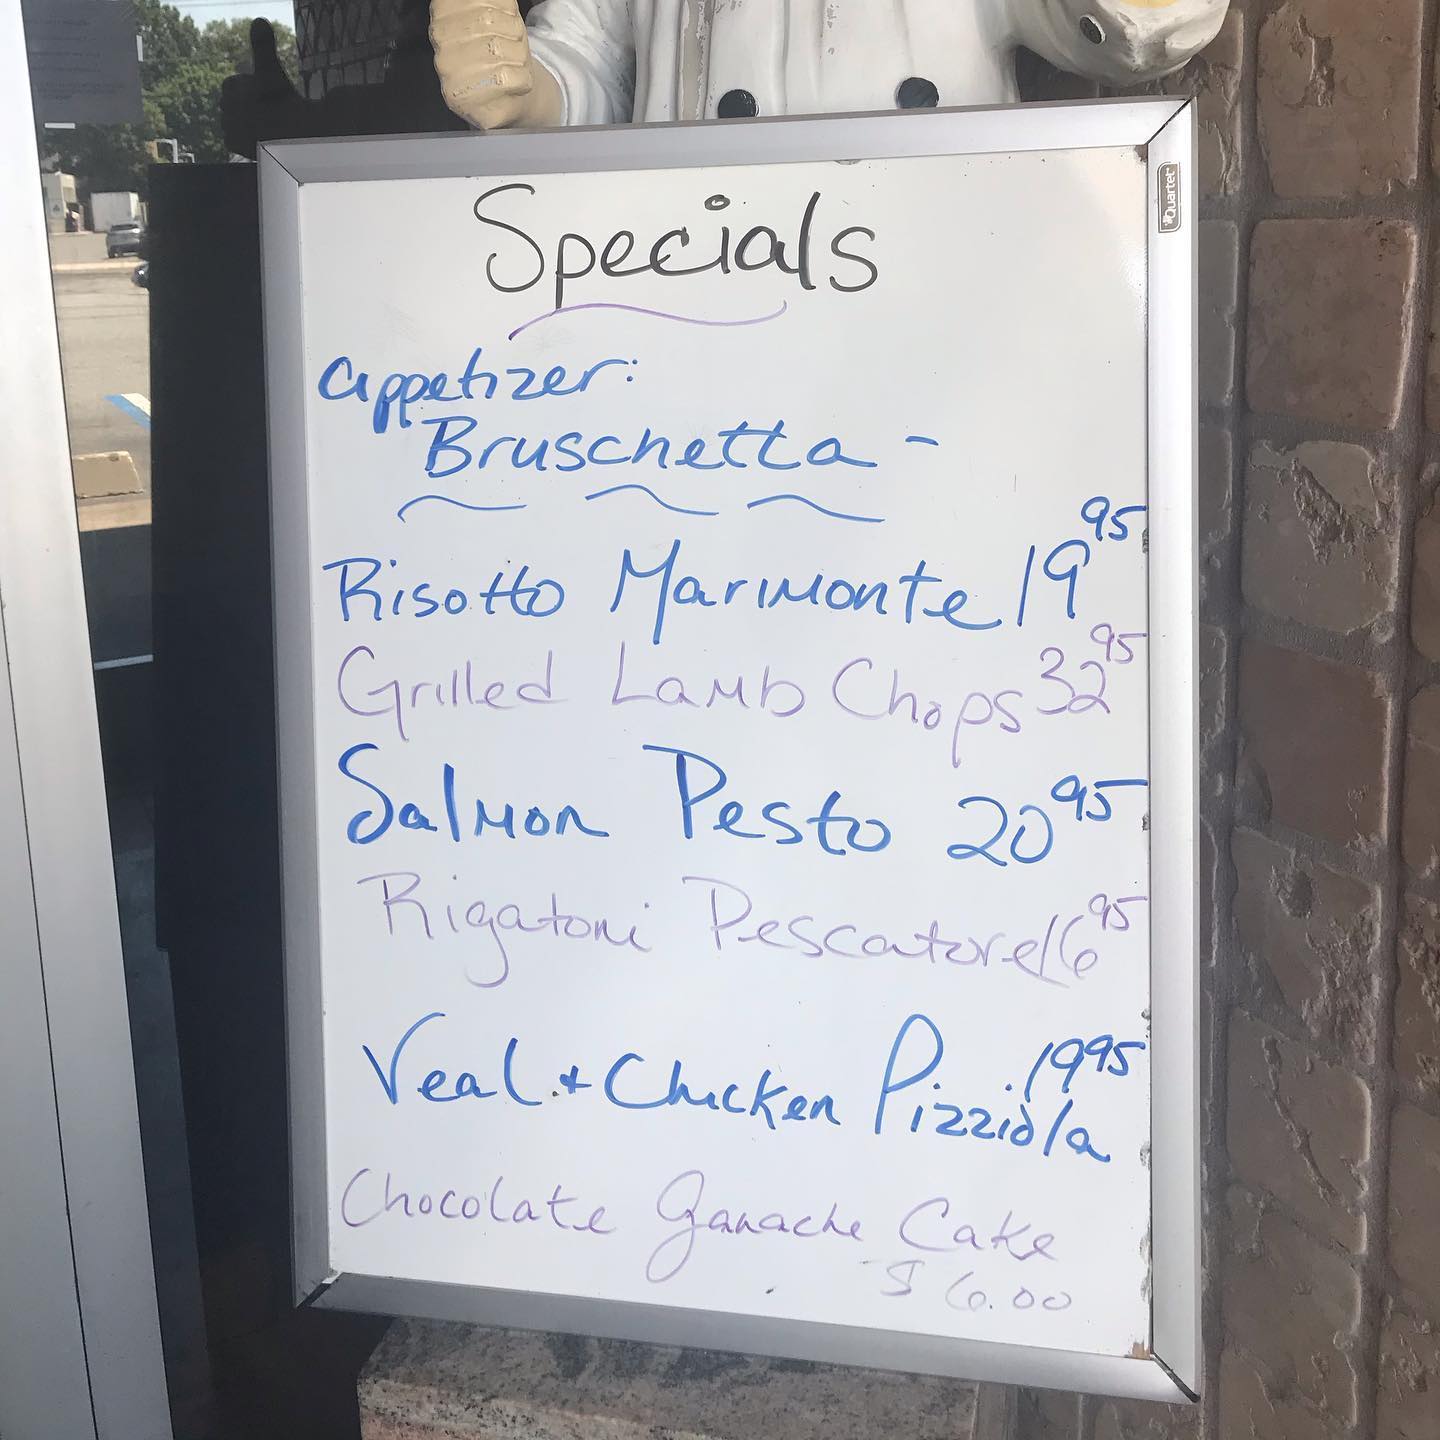 Quartet
Specials
appetizer:
Bruschetta -
Risotto Marimonte 19 95
Grilled Lamb Chops 32 95
Salmon Pesto 20 95
Rigatoni Pescatore 16 95
Veal + Chicken Pizziola 19 95
Chocolate ganache Cake
$6.00